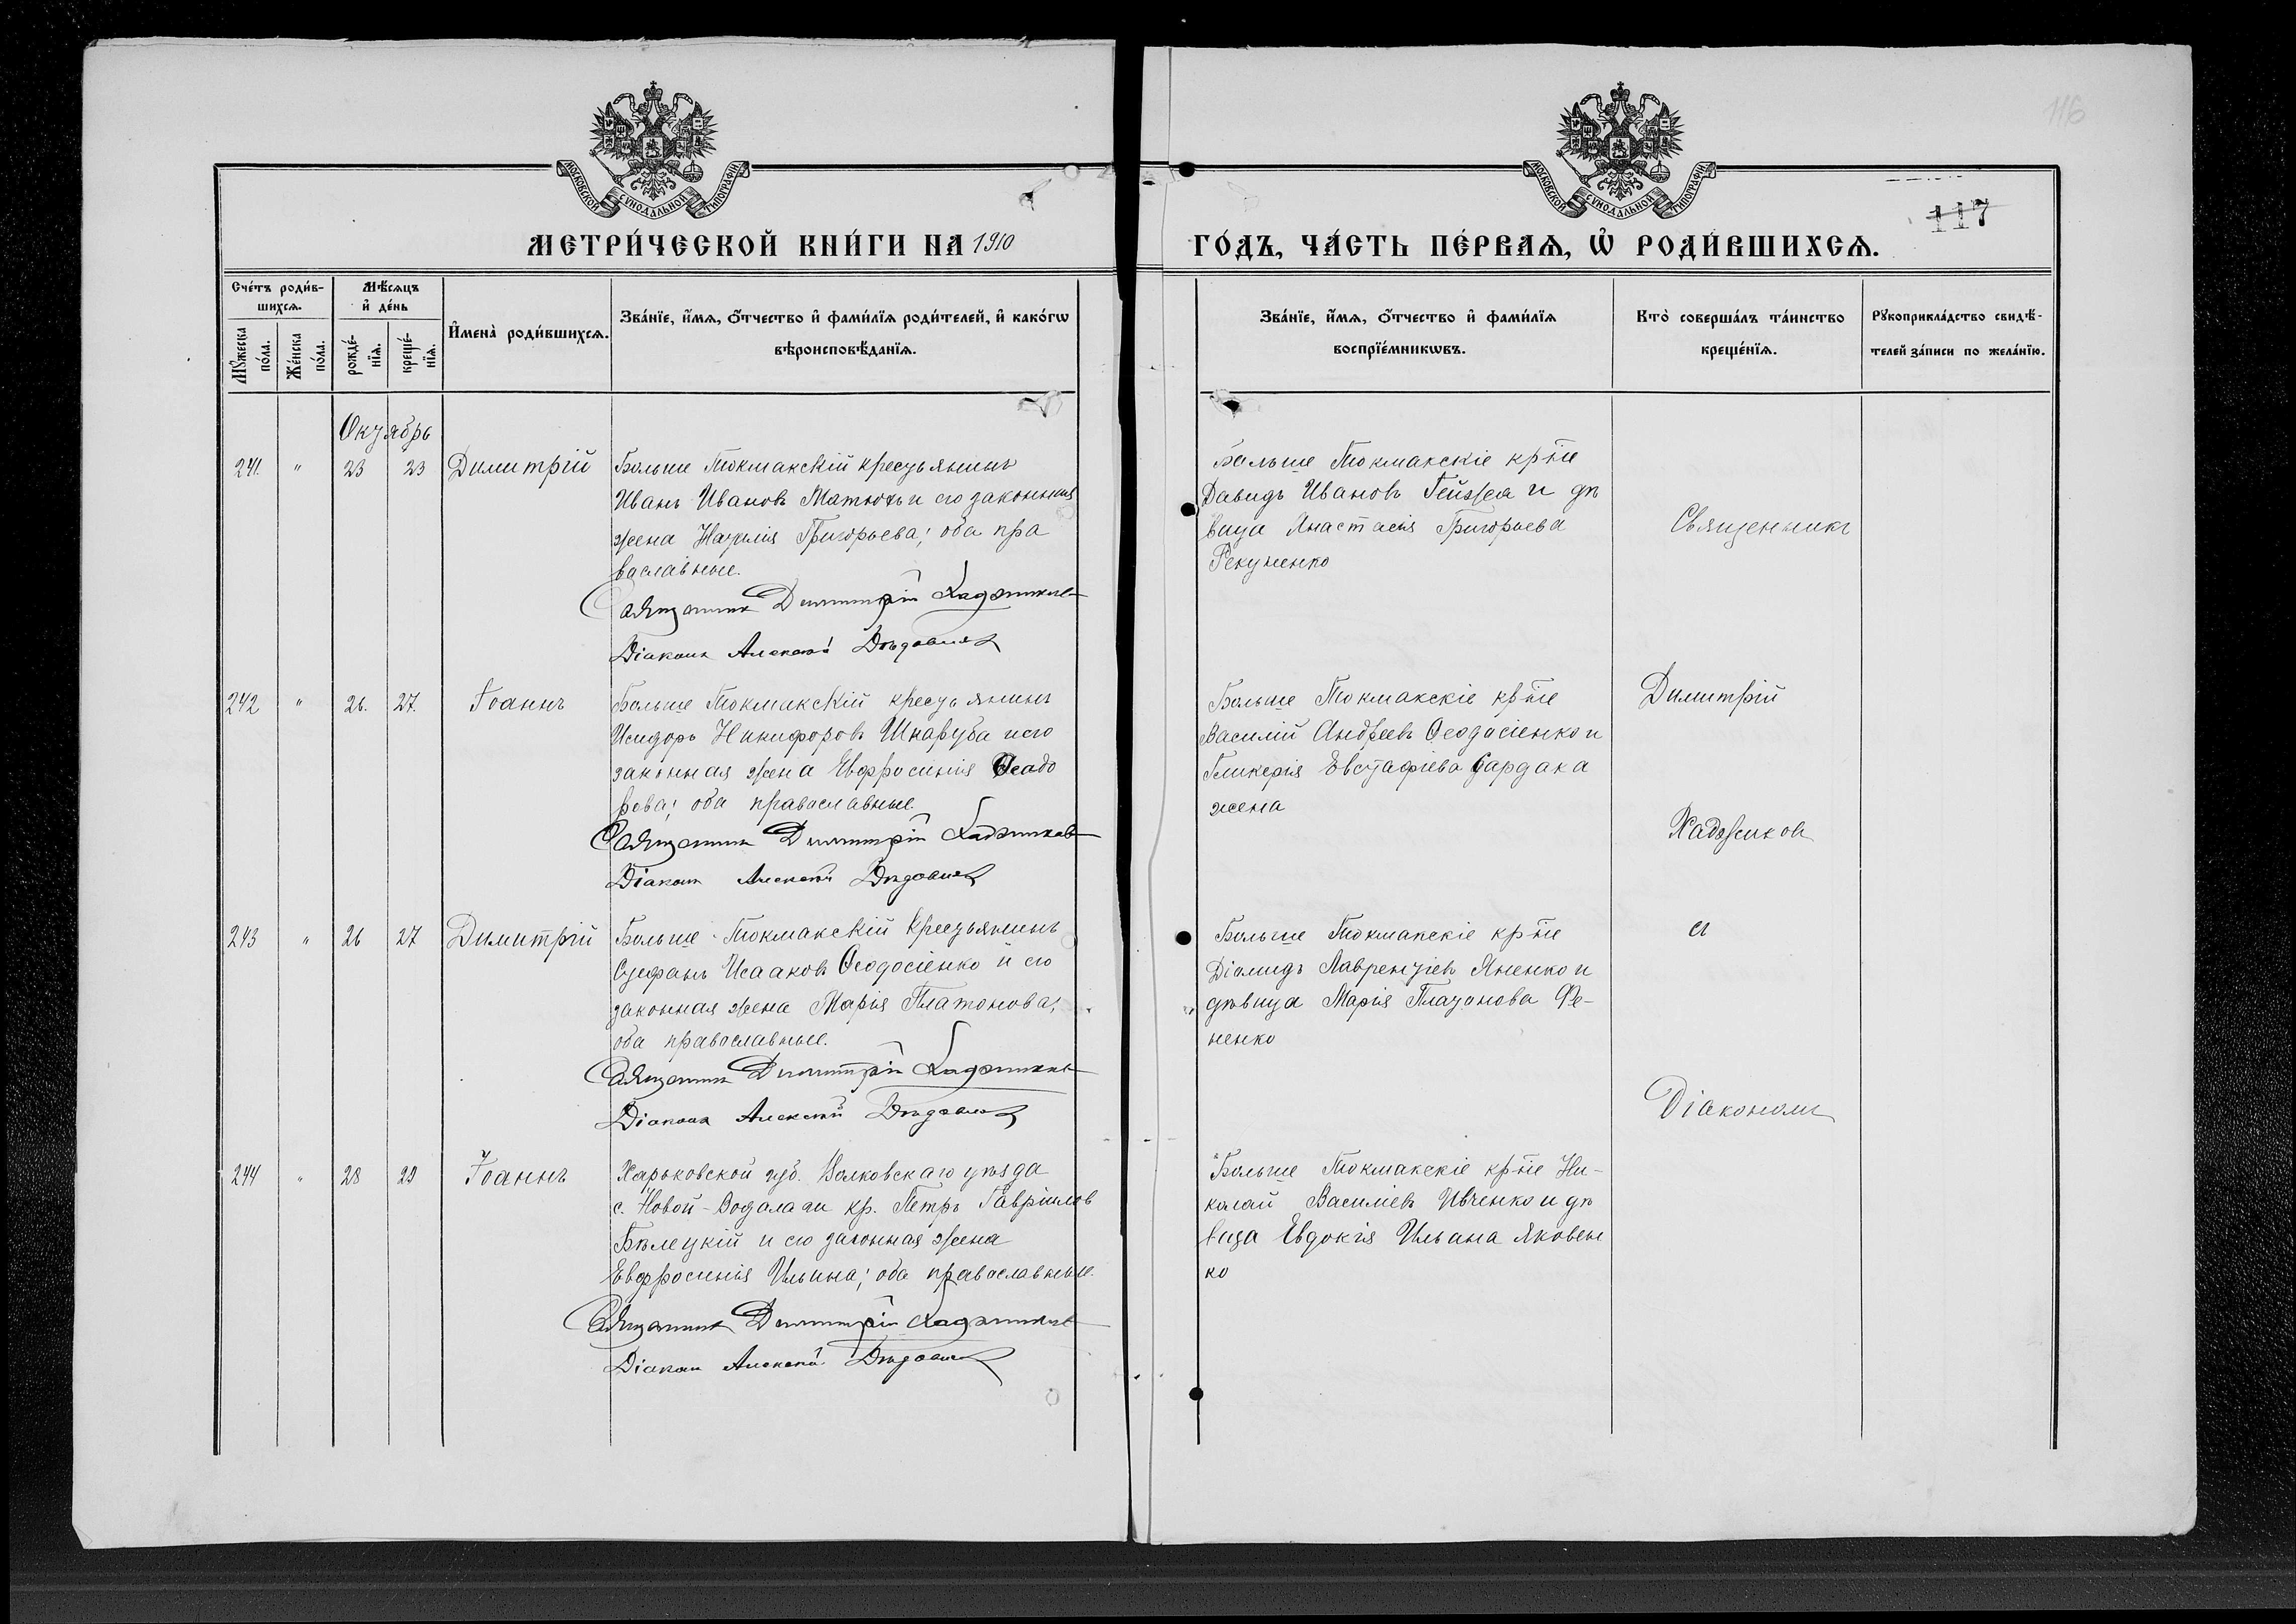 116
117
МОСКОВСКОЙ СѴНОДАЛЬНОЙ ТИПОГРАФІИ
МОСКОВСКОЙ СѴНОДАЛЬНОЙ ТИПОГРАФІИ
МЕТРИ́ЧЕСКОЙ КНИ́ГИ НА 1910
ГО́ДЪ, ЧА́СТЬ ПЕ́РВАѦ, Ѡ҆ РОДИ́ВШИХСѦ.
Сче́тъ роди́в-
шихсѧ.
Мѣ́сѧцъ
и҆ де́нь
Мꙋ́жеска
по́ла.
Же́нска
по́ла.
рожде́-
нїѧ.
креще́-
нїѧ.
И҆мена̀ роди́вшихсѧ.
Зва́нїе, и҆́мѧ, ѻ҆́тчество и҆ фами́лїѧ роди́телей, и҆ како́гѡ
вѣроисповѣ́данїѧ.
Зва́нїе, и҆́мѧ, ѻ҆́тчество и҆ фами́лїѧ
воспрїе́мникѡвъ.
Кто̀ соверша́лъ та́инство
креще́нїѧ.
Рꙋкоприкла́дство свидѣ́-
телей за́писи по жела́нїю.
Октябрь
241. " 23 23 Димитрій
Больше Токмакскій крестьянинъ
Иванъ Ивановъ Матюхъ и его законная
жена Наталія Григорьева; оба пра
вославные.
Священникъ Димитрій Хаджиковъ
Діаконъ Алексѣй Дѣдовичъ
Больше Токмакскіе кр-не
Давидъ Ивановъ и дѣ
вица Анастасія Григорьева
Рекуненко
242 " 26. 27. Іоаннъ
Больше Токмакскій крестьянинъ
Исидоръ Никифоровъ Шкаруба и его
законная жена Евфросинія Ѳеодо
рова; оба православные.
Священникъ Димитрій Хаджиковъ
Діаконъ Алексѣй Дѣдовичъ
Больше Токмакскіе кр-не
Василій Андреевъ Ѳеодосіенко и
Гликерія Евстафіева Сардака
жена
243 " 26 27 Димитрій
Больше-Токмакскій крестьянинъ
Стефанъ Исааковъ Ѳеодосіенко и его
законная жена Марія Платонова;
оба православные.
Священникъ Димитрій Хаджиковъ
Діаконъ Алексѣй Дѣдовичъ
Больше Токмакскіе кр-не
Діомидъ Лаврентіевъ Яненко и
дѣвица Марія Платонова Фе-
ненко
244 " 28 29 Іоаннъ
Харьковской губ. Валковскаго уѣзда
с. Новой-Водалаги кр. Петръ Гавріиловъ
Бѣлецкій и его законная жена
Евфросинія Ильина; оба православные.
Священникъ Димитрій Хаджиковъ
Діаконъ Алексѣй Дѣдовичъ
Больше Токмакскіе кр-не Ни-
колай Василіевъ Ивченко и дѣ
вица Евдокія Ильина Яковен
ко
Священникъ
Димитрій
Хаджиковъ
съ
Діакономъ